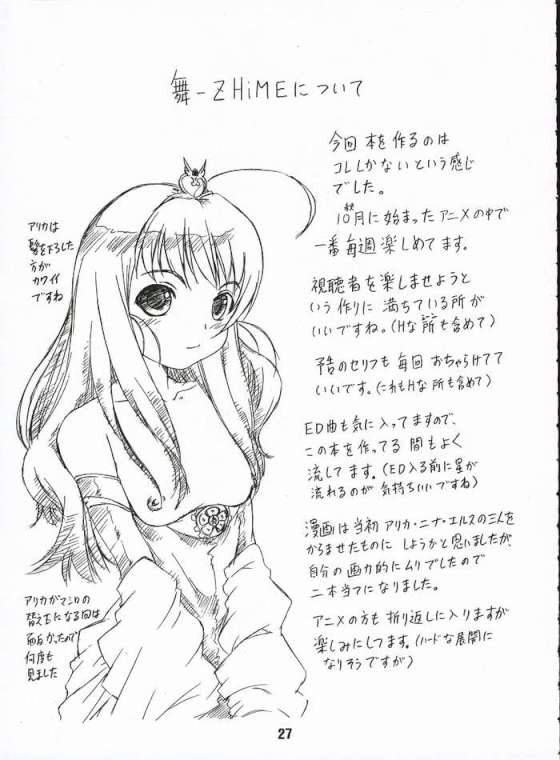 舞-ZHiMEについて
今回 本を作るのは
コレしかないという感じ
でした。
秋
10月に始まったアニメの中で
一番毎週楽しめてます。
視聴者を楽しませようと
いう作りに 満ちている所が
いいですね。(Hな所も含めて)
予告のセリフも毎回おちゃらけてて
いいです。(これもHな所も含めて)
ED曲も気に入ってますので、
この本を作ってる間もよく
流してます。(ED入る前に星が
流れるのが気持ちいいですね)
漫画は当初 アリカ・ニナ・エルスの三人を
からませたものに しようかと思いましたが、
自分の画力的にムリでしたので
二本当てになりました。
アニメの方も折り返しに入りますが
楽しみにしてます。(ハードな展開に
なりそうですが)
アリカは
髪を下ろした
方が
カワイイ
ですね
アリカがマシロの
替え玉になる回は
面白かったので
何度も
見ました
27